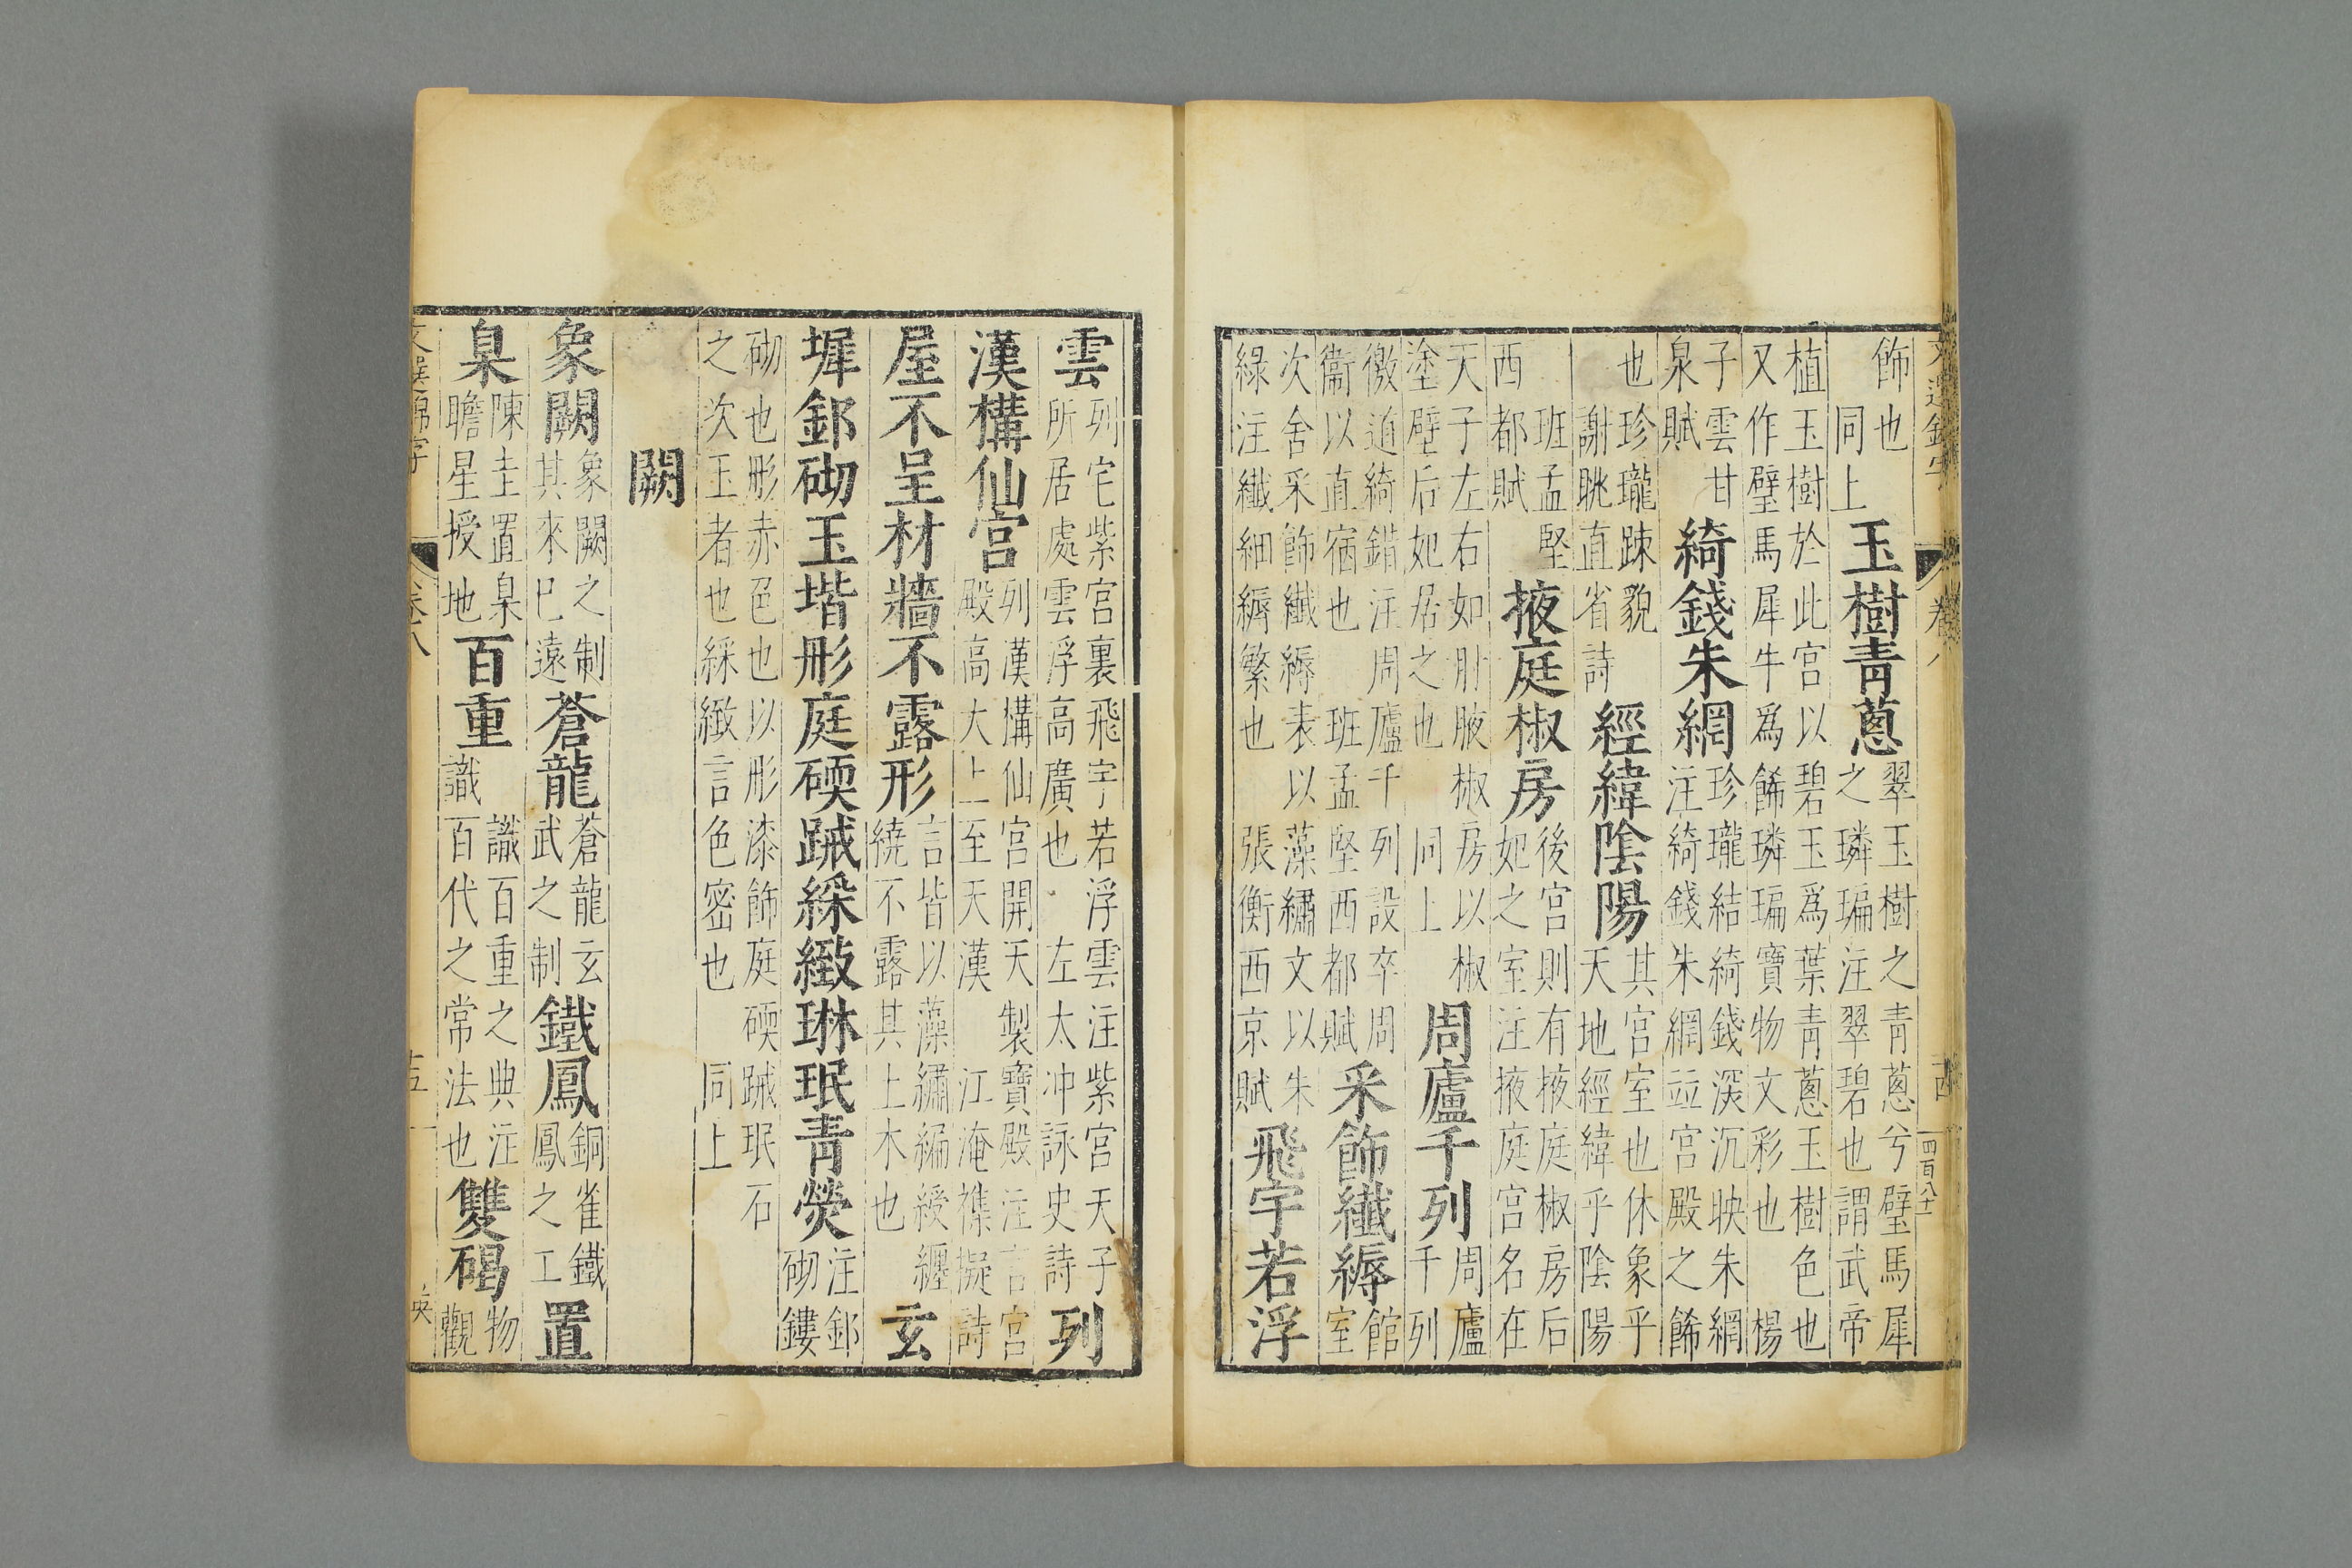 文選錦字 卷八 十四 四百八十
飾也同上玉樹青蔥翠玉樹之青蔥兮璧馬犀之璘㻞注翠碧也謂武帝
植玉樹於此宮以碧玉爲葉青蔥玉樹色也又作璧馬犀牛爲餙璘㻞寶物文彩也楊
子雲甘泉賦綺錢朱網珍瓏結綺錢深沉映朱網注綺錢朱網竝宮殿之餙
也珍瓏踈貌謝眺直省詩經緯陰陽其宮室也休象乎天地經緯乎陰陽
班孟堅西都賦掖庭椒房後宮則有掖庭椒房后妃之室注掖庭宮名在
天子左右如肘腋椒房以椒塗壁后妃居之也同上周廬千列周廬千列
徼道綺錯注周廬千列設卒周衞以直宿也班孟堅西都賦采飾纖縟館室
次舍采飾纖縟表以藻繡文以朱綠注纖細縟繁也張衡西京賦飛宇若浮
雲列宅紫宮裏飛宇若浮雲注紫宮天子所居處雲浮高廣也左太冲詠史詩列
漢構仙宮列漢構仙宮開天製寶殿注言宮殿高大上至天漢江淹襍擬詩
屋不呈材牆不露形言皆以藻繡編綬纏繞不露其土木也玄
墀釦砌玉堦彤庭碝綵緻琳珉青熒注釦砌鏤
砌也彤赤色也以彤漆飾庭碝珉石之次玉者也綵緻言色密也同上
闕
象闕象闕之制其來已遠蒼龍蒼龍玄武之制鐵鳳銅雀鐵鳳之工置
臬陳圭置臬瞻星授地百重識百重之典注識百代之常法也雙碣物觀
文選錦字 卷八 十五